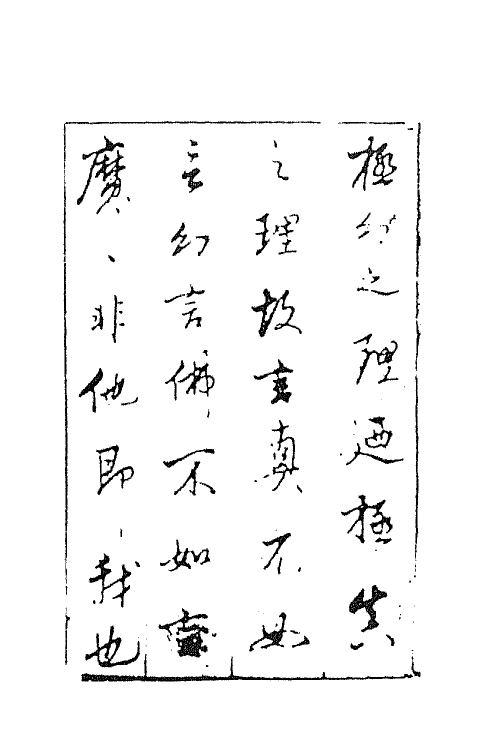 極幻之理迺極真
之理故言真不如
言幻言佛不如言
魔、非他即我也